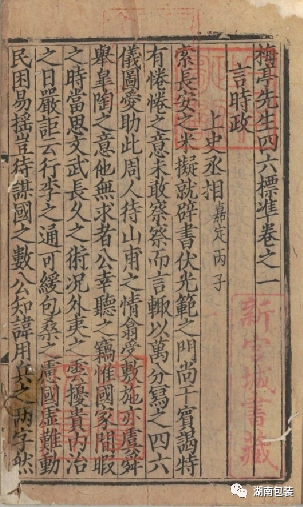 梅亭先生四六標準卷之一
言時政
上史丞相 嘉定丙子
索長安之米擬就辟書伏光範之門尚干賓謁特
有惓惓之意未敢察察而言輒以萬分寫之四六
儀圖愛助此周人待山甫之情翕受敷施亦虞舜
舉皐陶之意他無求者公幸聽之竊惟國家閒暇
之時當思文武長久之術况外夷之雲擾貴内治
之日嚴詎云行李之通可緩包桑之慮國虛難動
民困易搖豈待謀國之數公知諱用兵之兩字然
城書藏
湖南包装